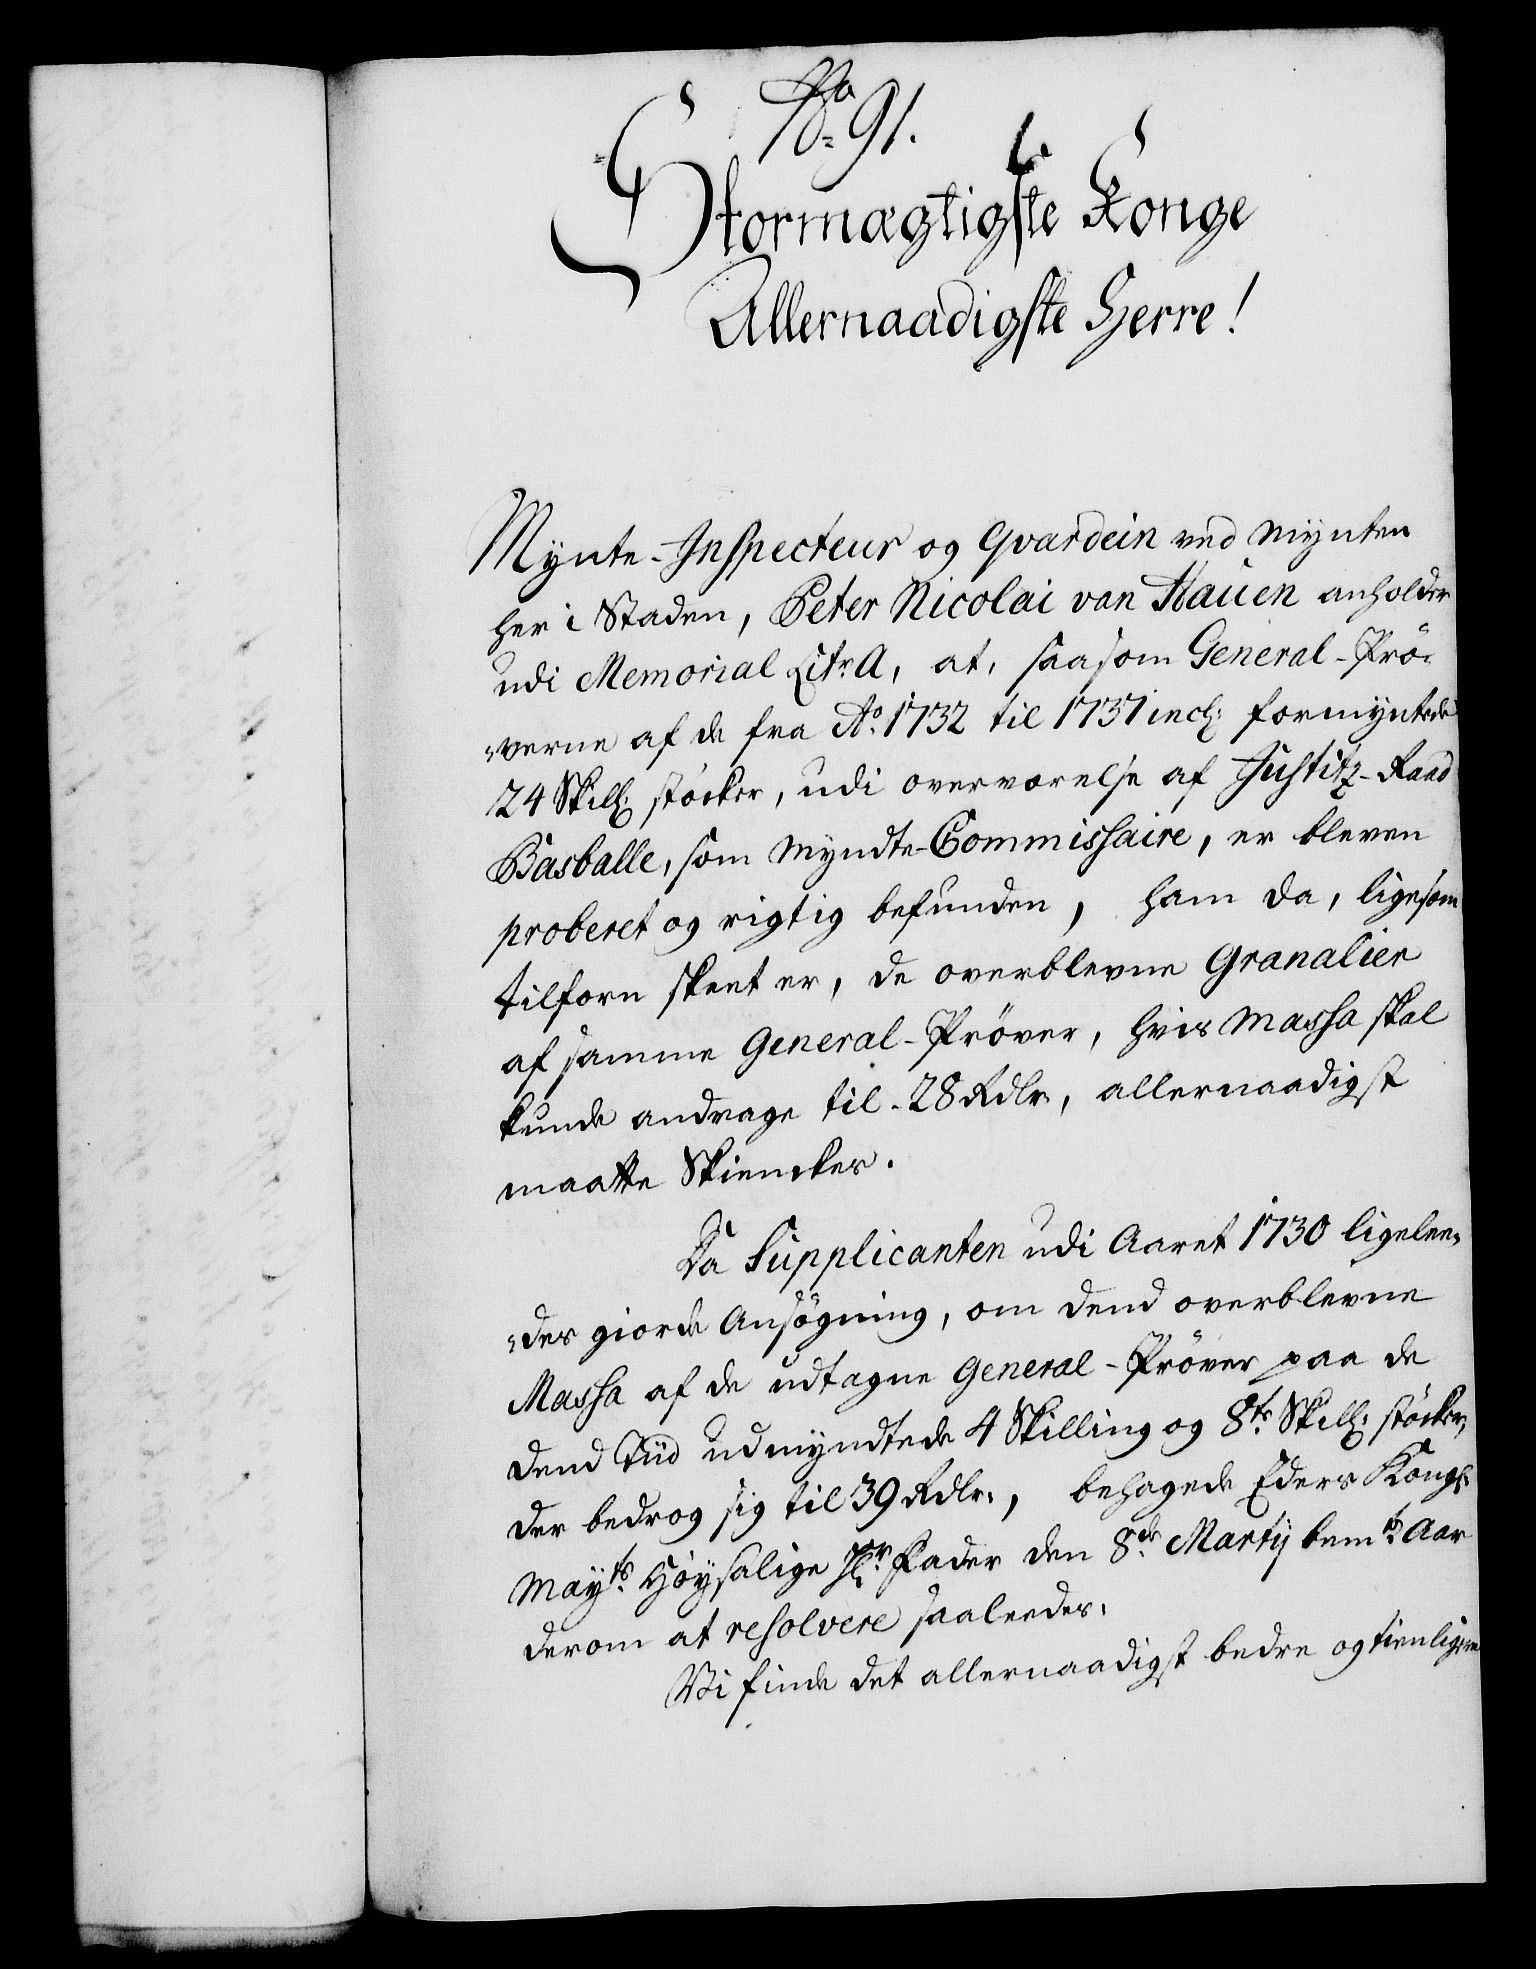 No 91.
Stormægtigste Konge
Allernaadigste Herre!
Mÿnte-Inspecteur og Gvardein ved Mÿnten
her i Staden, Peter Nicolai van Hauen anholder
udi Memorial Litr. A, at, saasom General-Prö-
verne af de fra Ao. 1732 til 1737 incl: formÿntede
24 Skill: stöcker, udi overværelse af Justitz-Raad
Basballe, som Mÿndte-Commissaire, er bleven
proberet og rigtig befunden, ham da, ligesom
tilforn skeet er, de overblevne Granalier
af samme General-Pröver, hvis Massa skal
kunde andrage til 28 Rdlr., allernaadigst
maatte Skienckes.
Da Supplicanten udi Aaret 1730 ligelee-
des giorde Ansögning, om dend overblevne
Massa af de udtagne General-Pröver paa de
dend Tiid udmÿndtede 4 Skilling og 8te Skill: stöcker,
der bedrog sig til 39 Rdlr., behagede Eders Kongl:
Maÿts. Höÿsalige Hr. Fader den 8de Martÿ bemte Aar
derom at resolvere saaleedes:
Vi finde det allernaadigst bedre og tienligere